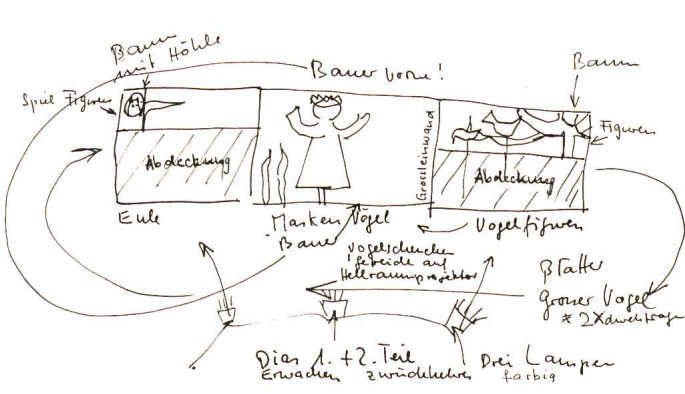 Baum
mit Höhle
Bauer vorne!
Baum
Spiel Figuren
Figuren
Grossleinwand
Abdeckung
Abdeckung
Eule
Masken Vögel
Bauer
Vogelfiguren
Vogelscheuchen
Getreide auf
Hellraumprojektor
Blätter
Grosser Vogel
2x
Dias 1. + 2. Teil
Erwachen zurückkehren
Drei Lampen
farbig